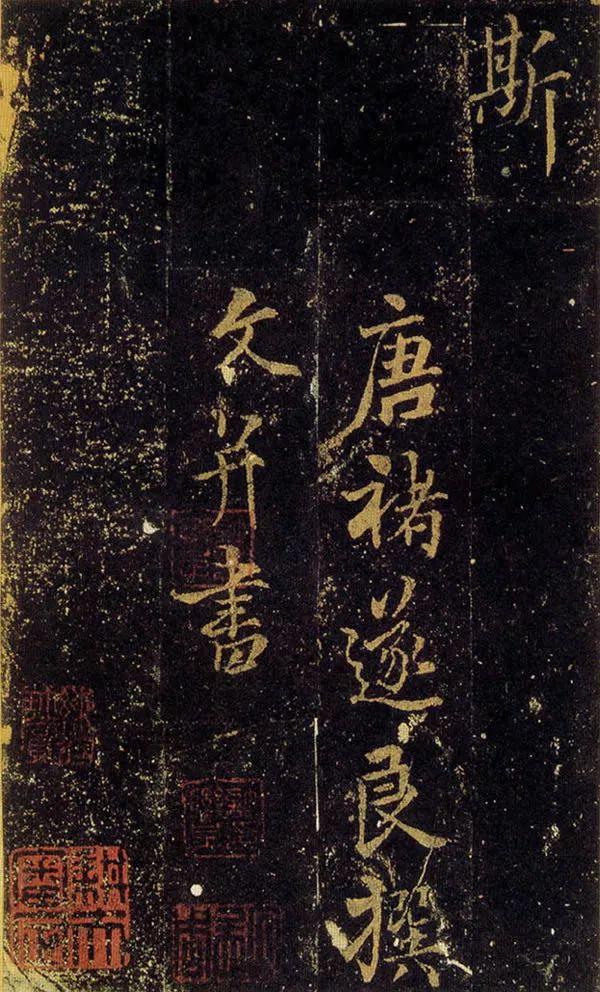 斯
唐褚遂良撰
文并書